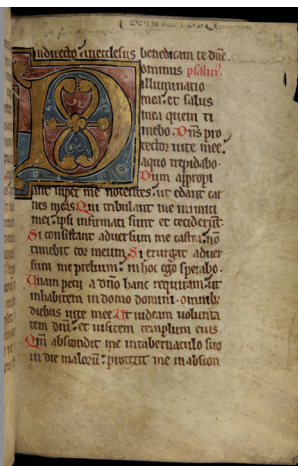 in directo. in ecclesiis benedicam te dñe.
Dominus psalm9.
illuminatio
mea. et salus
mea quem ti
mebo. Dñs pro
tector uite mee.
a quo trepidabo.
Dum appropi
ant super me nocentes. ut edant car
nes meas. Qui tribulant me inimici
mei. ipsi infirmati sunt et ceciderūt.
Si consistant aduersum me castra. nō
timebit cor meum. Si exurgat aduer
sum me prelium. in hoc ego sperabo.
Unam petii a dño hanc requiram. ut
inhabitem in domo domini. omnib;
diebus uite mee. Ut uideam uolunta
tem dñi. et uisitem templum eius.
Qm̄ abscondit me in tabernaculo suo
in die maloꝝ. protexit me in abscon